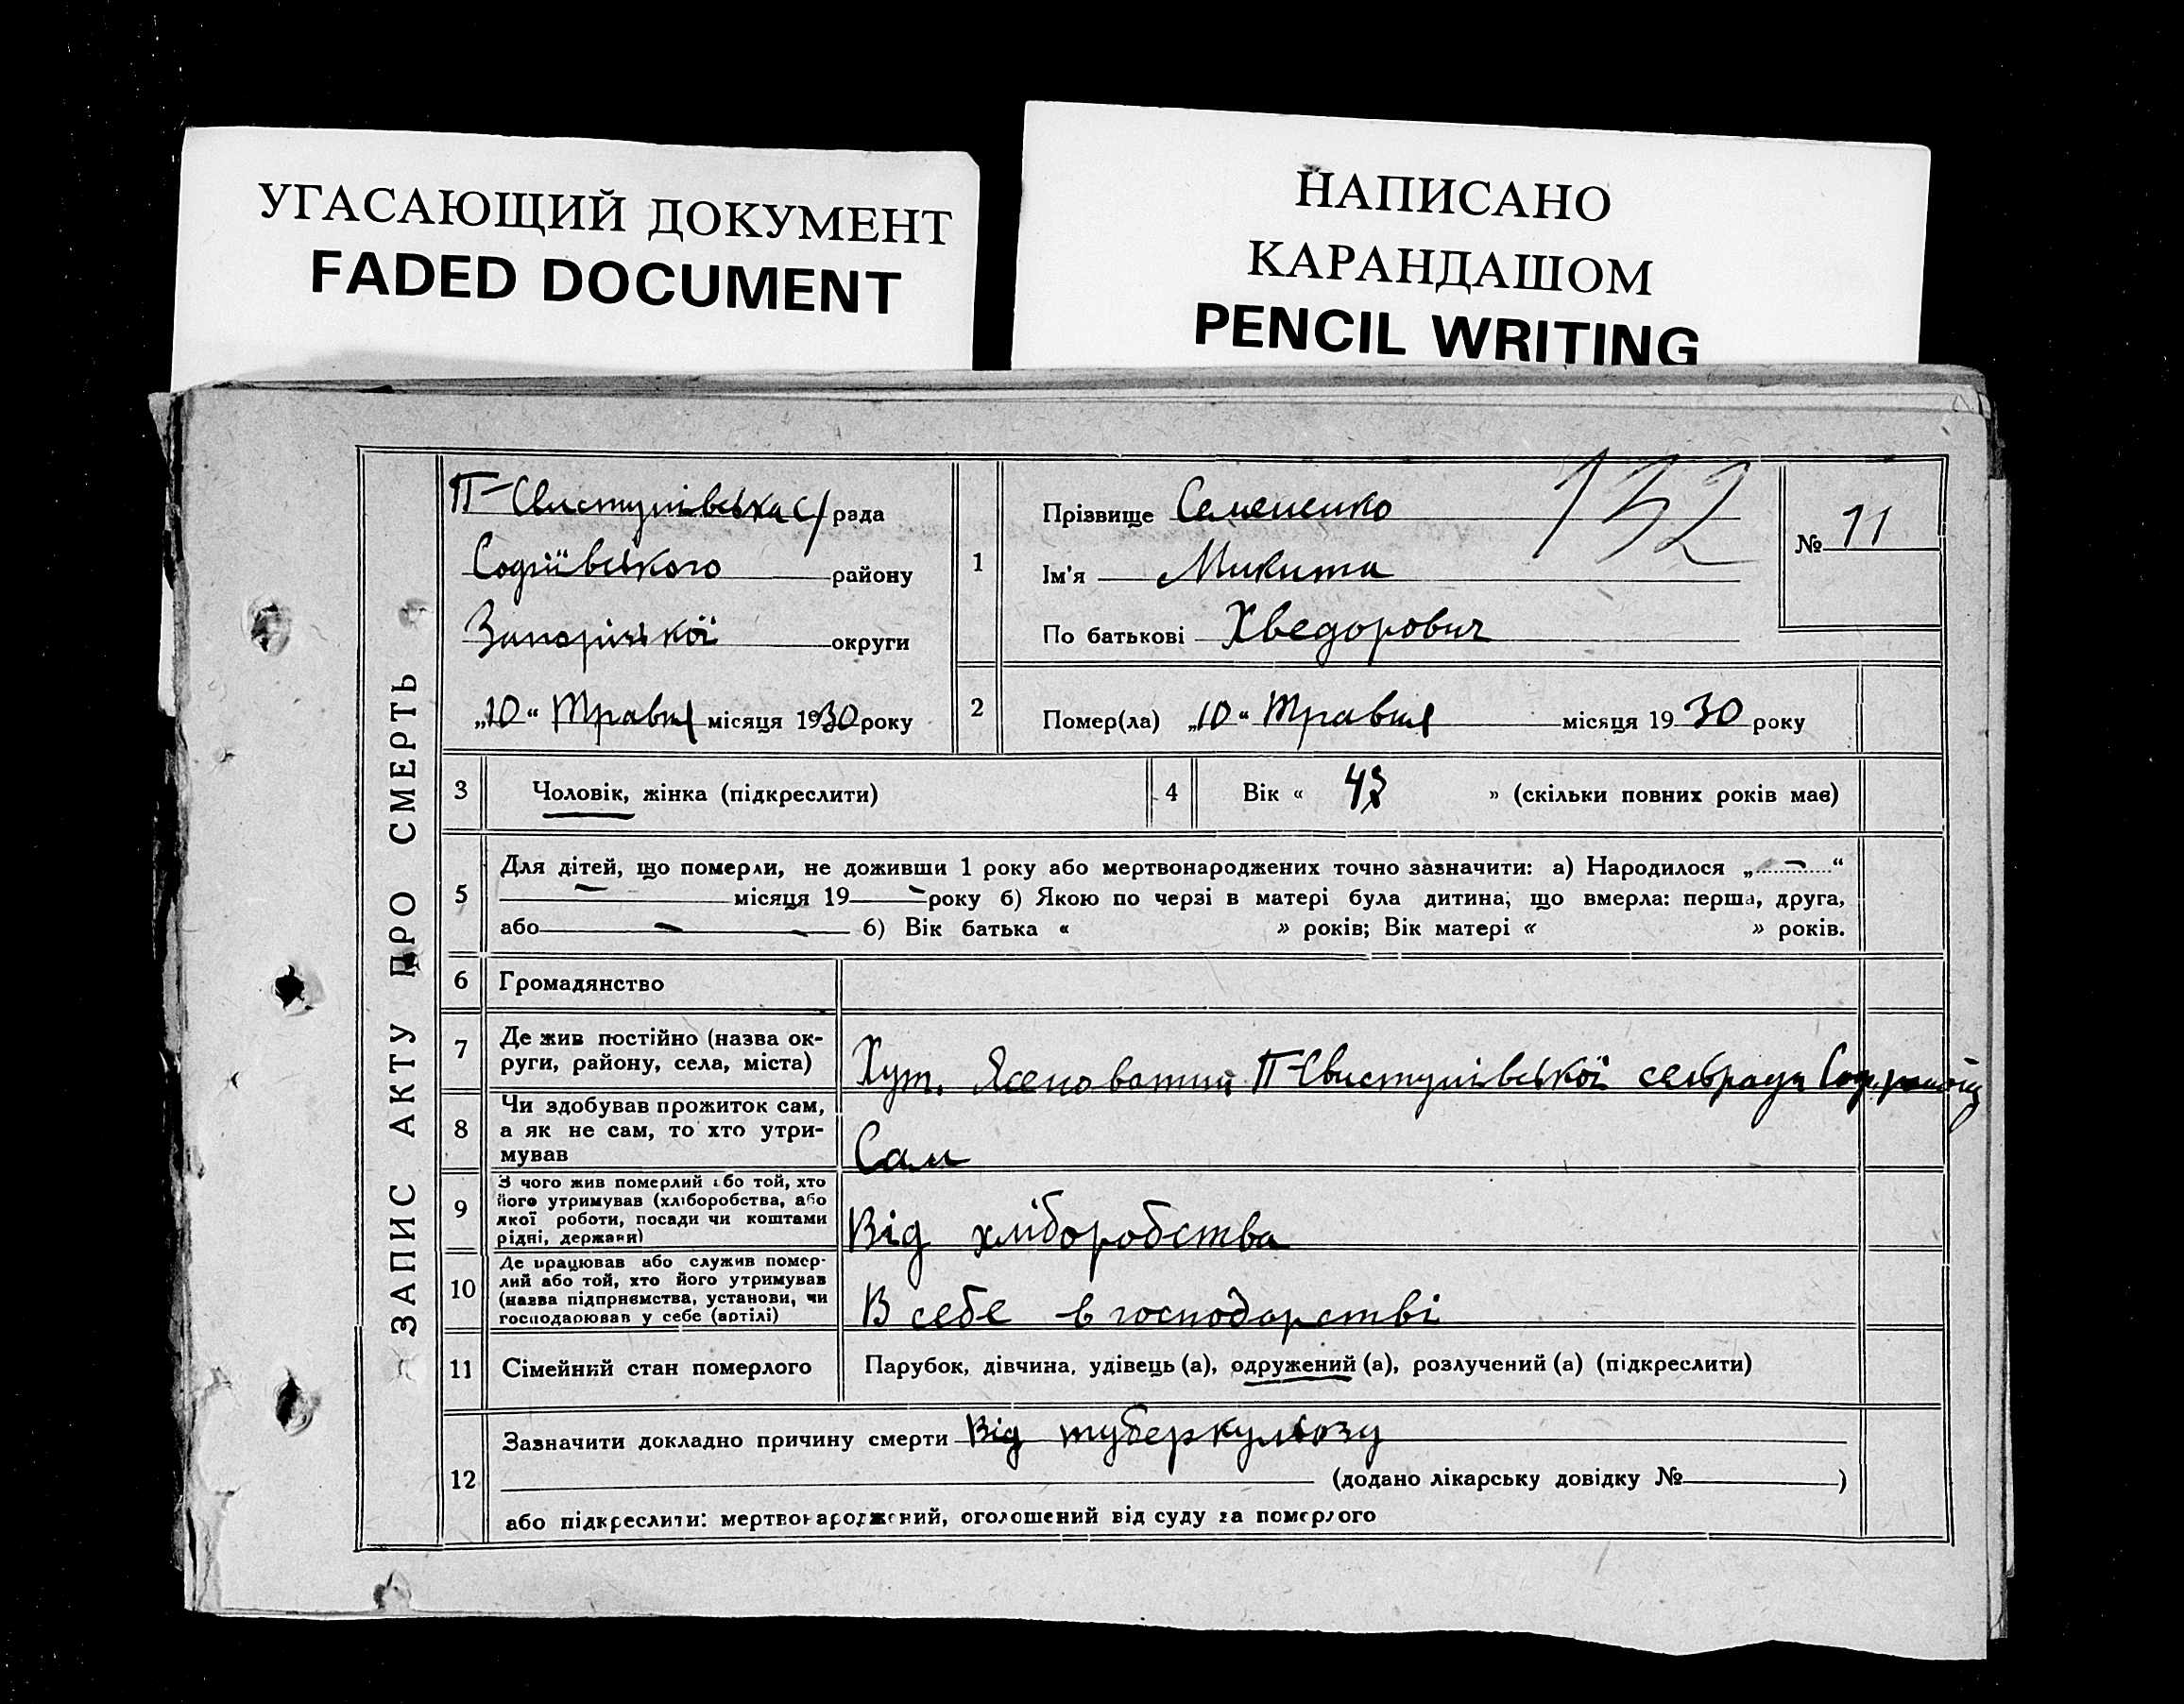 УГАСАЮЩИЙ ДОКУМЕНТ
FADED DOCUMENT
НАПИСАНО
КАРАНДАШОМ
PENCIL WRITING
ЗАПИС АКТУ ПРО СМЕРТЬ
П-Свистунівська с/рада
Софіївського району
Запорізької округи
„10“ Травня місяця 1930 року
1
Прізвище Семененко
132
№ 11
Ім'я Микита
По батькові Хведорович
2
Помер(ла) „10“ Травня місяця 1930 року
3 Чоловік, жінка (підкреслити)
4 Вік « 43 » (скільки повних років має)
5 Для дітей, що померли, не доживши 1 року або мертвонароджених точно зазначити: а) Народилося „ — “
— місяця 19 — року б) Якою по черзі в матері була дитина, що вмерла: перша, друга,
або — — б) Вік батька « » років; Вік матері « » років.
6 Громадянство
7 Де жив постійно (назва ок-
руги, району, села, міста)
Хут. Ясеноватий П-Свистунівської сельради Соф.
8 Чи здобував прожиток сам,
а як не сам, то хто утри-
мував
Сам
9 З чого жив померлий або той, хто
його утримував (хліборобства, або
якої роботи, посади чи коштами
рідні, держави)
Від хліборобства
10 Де працював або служив помер-
лий або той, хто його утримував
(назва підприємства, установи, чи
господарював у себе (артілі)
В себе в господарстві
11 Сімейний стан померлого
Парубок, дівчина, удівець (а), одружений (а), розлучений (а) (підкреслити)
12 Зазначити докладно причину смерти Від туберкульозу
(додано лікарську довідку № )
або підкреслити: мертвонароджений, оголошений від суду за померлого